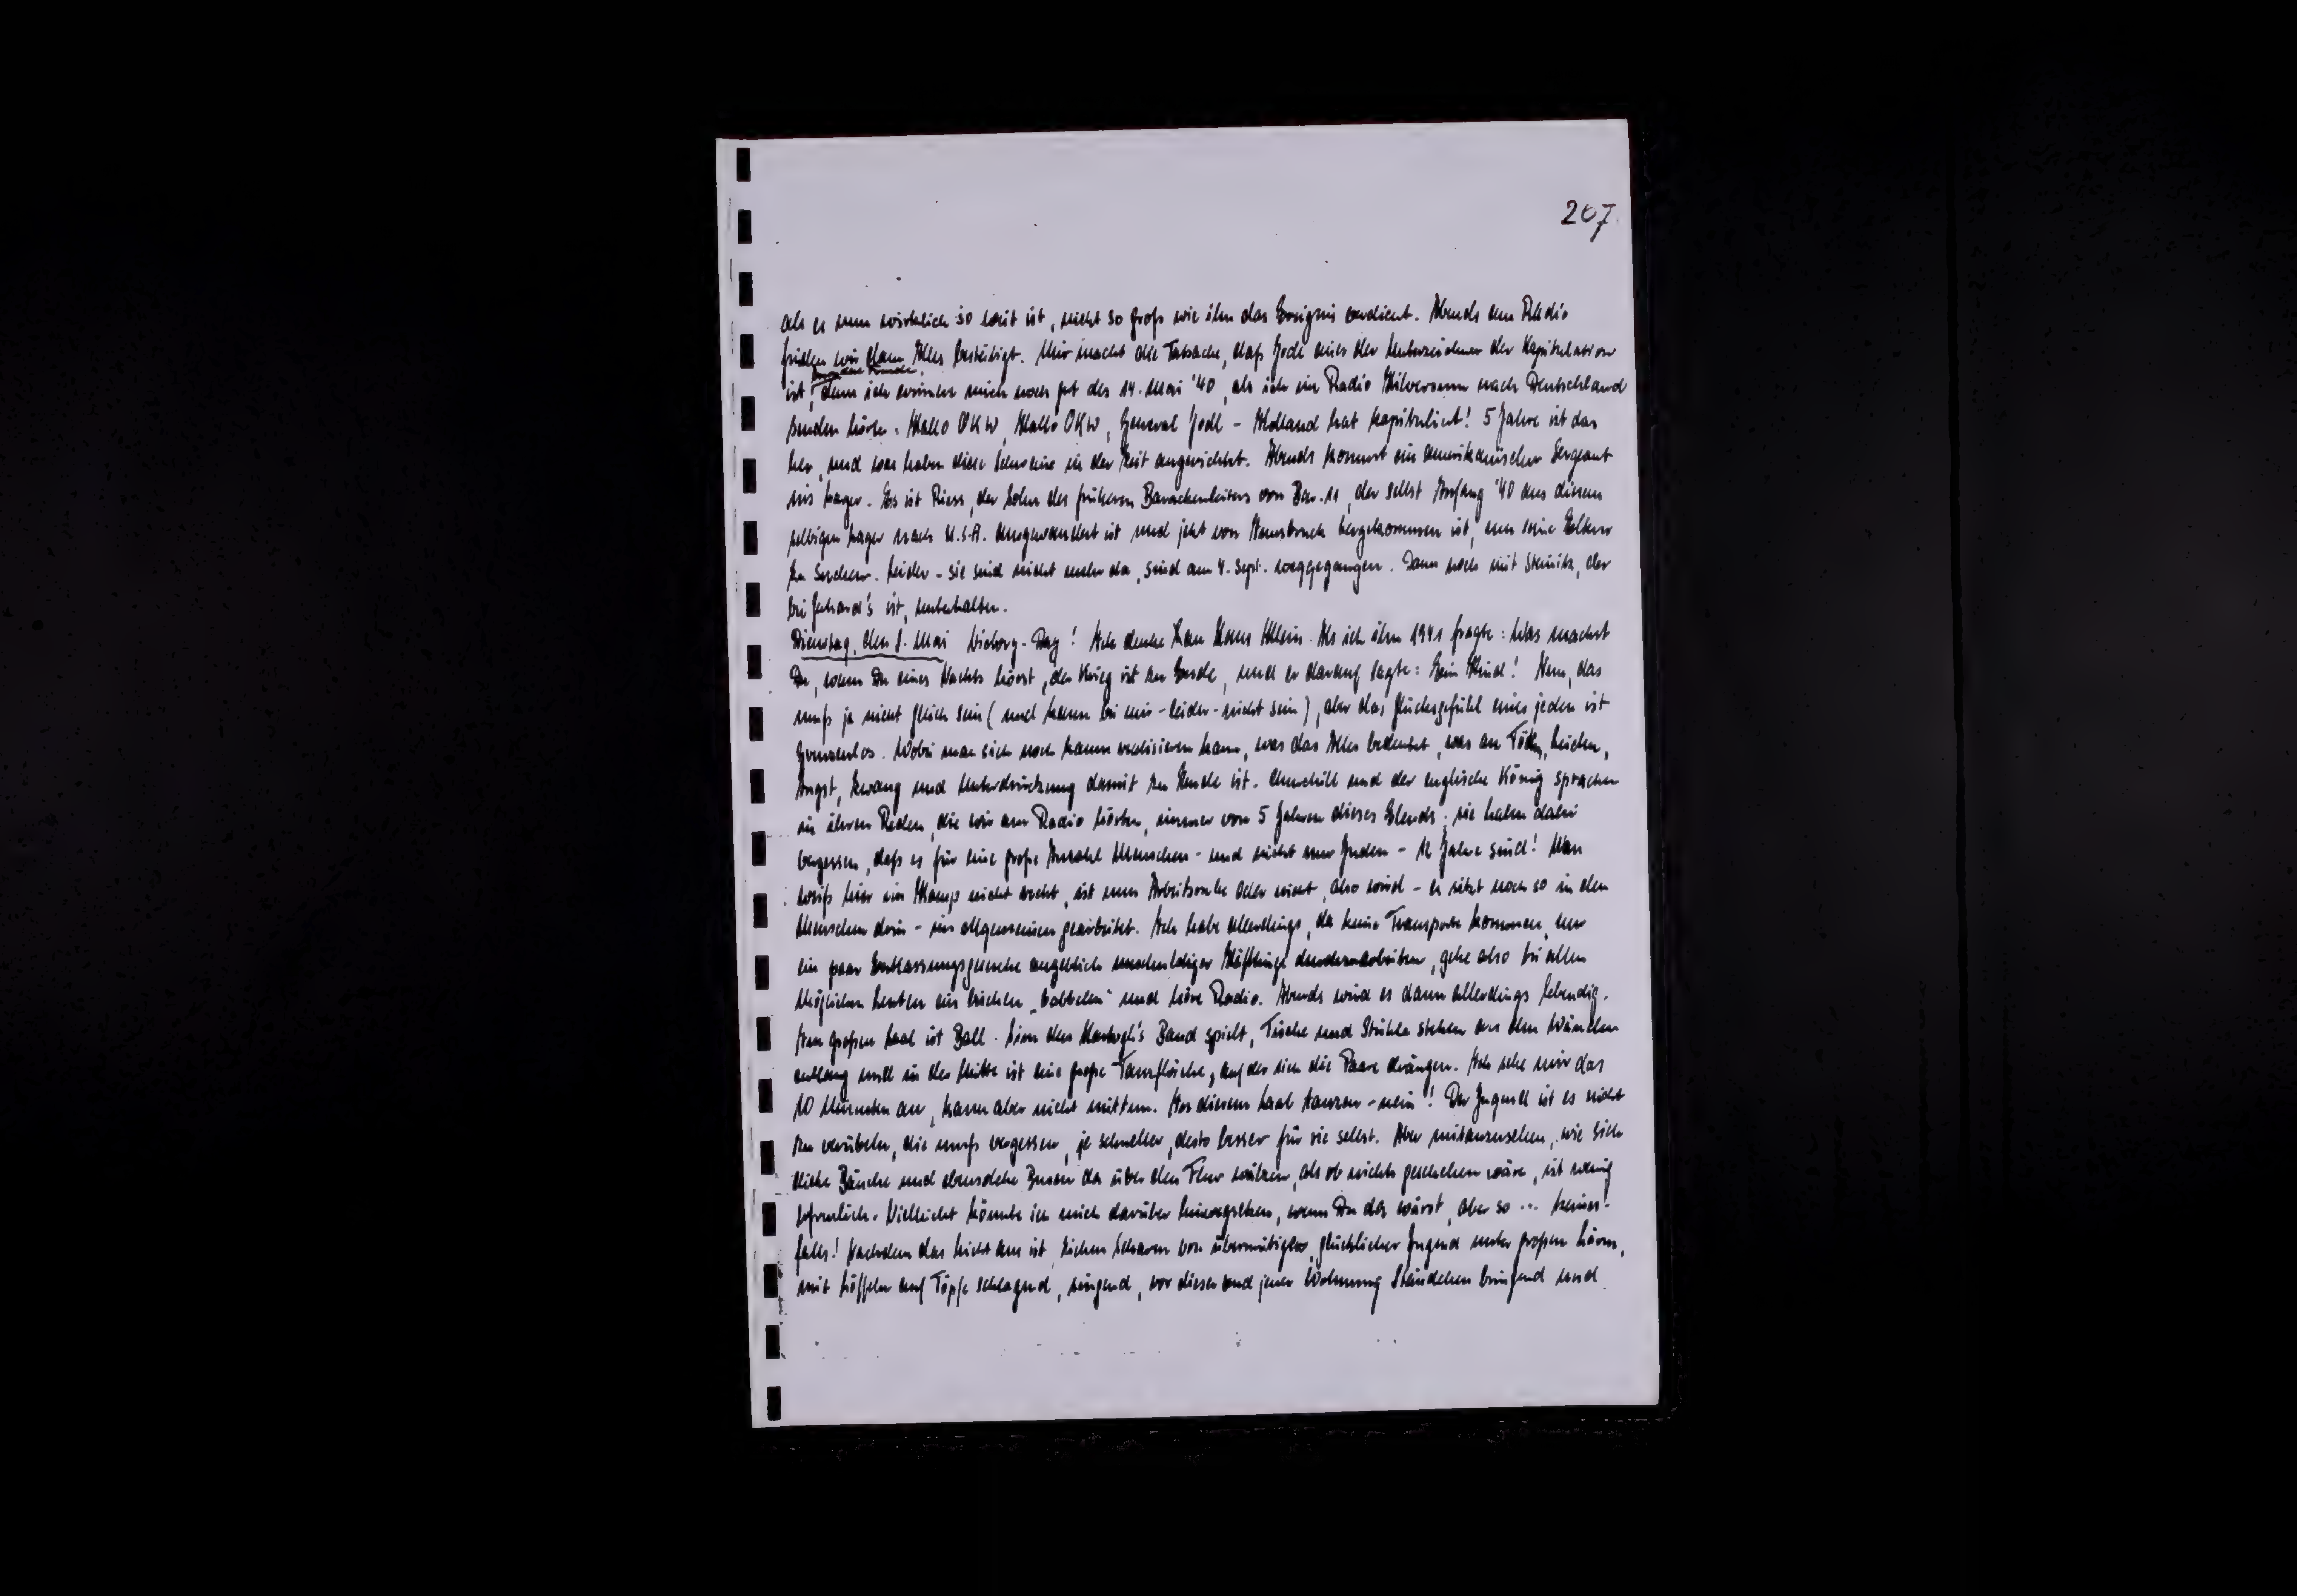 207.
als es nun wirklich so weit ist, nicht so groß wie ihm das Ereignis verdient. Abends am Radio
finden wir dann Alles bestätigt. Mir macht die Tatsache, daß Jodl einer der Unterzeichner der Kapitulation
besondere Freude,
ist, denn ich erinnere mich noch gut des 14. Mai '40, als ich im Radio Hilversum nach Deutschland
senden hörte: Hallo OKW, Hallo OKW, General Jodl - Holland hat kapituliert! 5 Jahre ist das
her, und was haben diese Schweine in der Zeit angerichtet. Abends kommt ein amerikanischer Sergeant
ins Lager. Es ist Riess, der Sohn des früheren Barackenleiters von Bar. 11, der selbst Anfang '40 aus diesem
selbigen Lager nach U.S.A. ausgewandert ist und jetzt von Osnabrück hergekommen ist, um seine Eltern
zu suchen. Leider - sie sind nicht mehr da, sind am 4. Sept. weggegangen. Dann noch mit Steinitz, der
bei Gerhard's ist, unterhalten.
Dienstag, den 8. Mai Victory-Day! Ich denke an Hans Klein. Als ich ihn 1941 fragte: Was machst
Du, wenn Du eines Nachts hörst, der Krieg ist zu Ende, und er darauf sagte: Ein Kind! Nun, das
muß ja nicht gleich sein (und kann bei mir - leider - nicht sein), aber das Glücksgefühl eines jeden ist
grenzenlos. Wobei man sich noch kaum realisieren kann, was das Alles bedeutet, was an Töten, Leiden,
Angst, Zwang und Unterdrückung damit zu Ende ist. Churchill und der englische König sprachen
in ihren Reden, die wir am Radio hörten, immer von 5 Jahren dieses Elends; sie haben dabei
vergessen, daß es für eine große Anzahl Menschen - und nicht nur Juden - 12 Jahre sind! Man
weiß hier im Kamp nicht recht, ist nun Arbeitsruhe oder nicht, also wird - es sitzt noch so in den
Menschen drin - im allgemeinen gearbeitet. Ich habe allerdings, da keine Transporte kommen, nur
ein paar Entlassungsgesuche angeblich unschuldiger Häftlinge durchzuarbeiten, gehe also bei allen
möglichen Leuten ein bischen „babbeln“ und höre Radio. Abends wird es dann allerdings lebendig.
Im großen Saal ist Ball. Band spielt, Tische und Stühle stehen an den Wänden
entlang und in der Mitte ist eine große Tanzfläche, auf der sich die Paare drängen. Ich sehe mir das
10 Minuten an, kann aber nicht mittun. In diesem Saal tanzen - nein! Der Jugend ist es nicht
zu verübeln, die muß vergessen, je schneller, desto besser für sie selbst. Aber mitanzusehen, wie sich
dicke Bäuche und ebensolche Busen da über den Flur wälzen, als ob nichts geschehen wäre, ist wenig
erfreulich. Vielleicht könnte ich mich darüber hinwegsetzen, wenn Du da wärst, aber so ... keines-
falls! Nachdem das Licht aus ist, ziehen Scharen von übermütiger, glücklicher Jugend unter großem Lärm,
mit Löffeln auf Töpfe schlagend, singend, vor dieser und jener Wohnung Ständchen bringend und